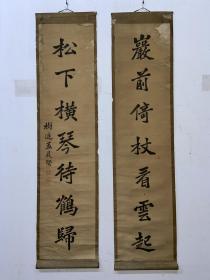 巖前倚杖看雲起
松下橫琴待鶴歸